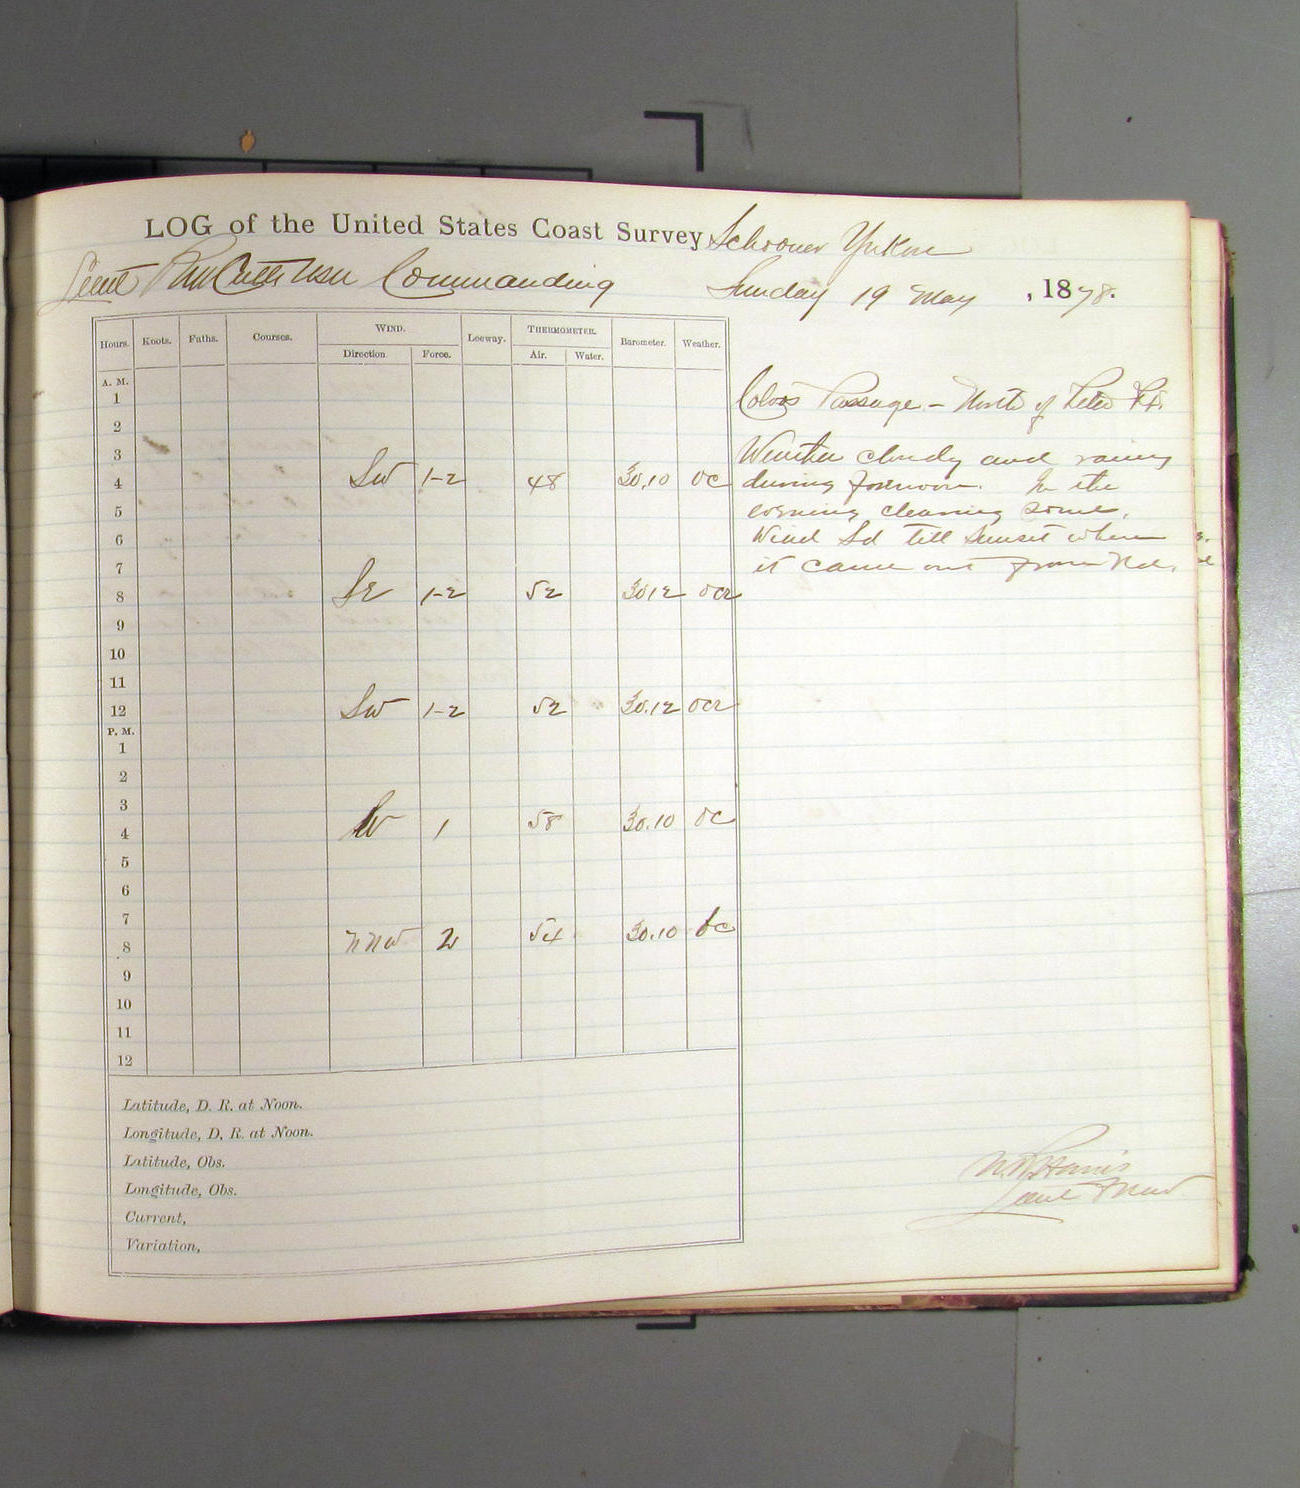 LOG of the United States Coast Survey Schooner Yukon
Lieut USN Commanding Sunday 19 May, 1878.
Hours. Knots. Faths. Courses. WIND. Leeway. THERMOMETER. Barometer. Weather.
Direction. Force. Air. Water.
A. M.
1
Colvos Passage - North of Pt.
2
3
Weather cloudy and rainy
4 SW 1-2 48 30.10 oc
during forenoon. In the
5
evening clearing some.
6
Wind Sd till sunset when
7
it came out from Nd.
8 SE 1-2 52 30 12 ocr
9
10
11
12 SW 1-2 52 30.12 ocr
P. M.
1
2
3
4 1 58 30.10 oc
5
6
7
8 NNW 2 54 30.10 bc
9
10
11
12
Latitude, D. R. at Noon.
Longitude, D. R. at Noon.
Latitude, Obs.
Longitude, Obs.
Current,
Variation,